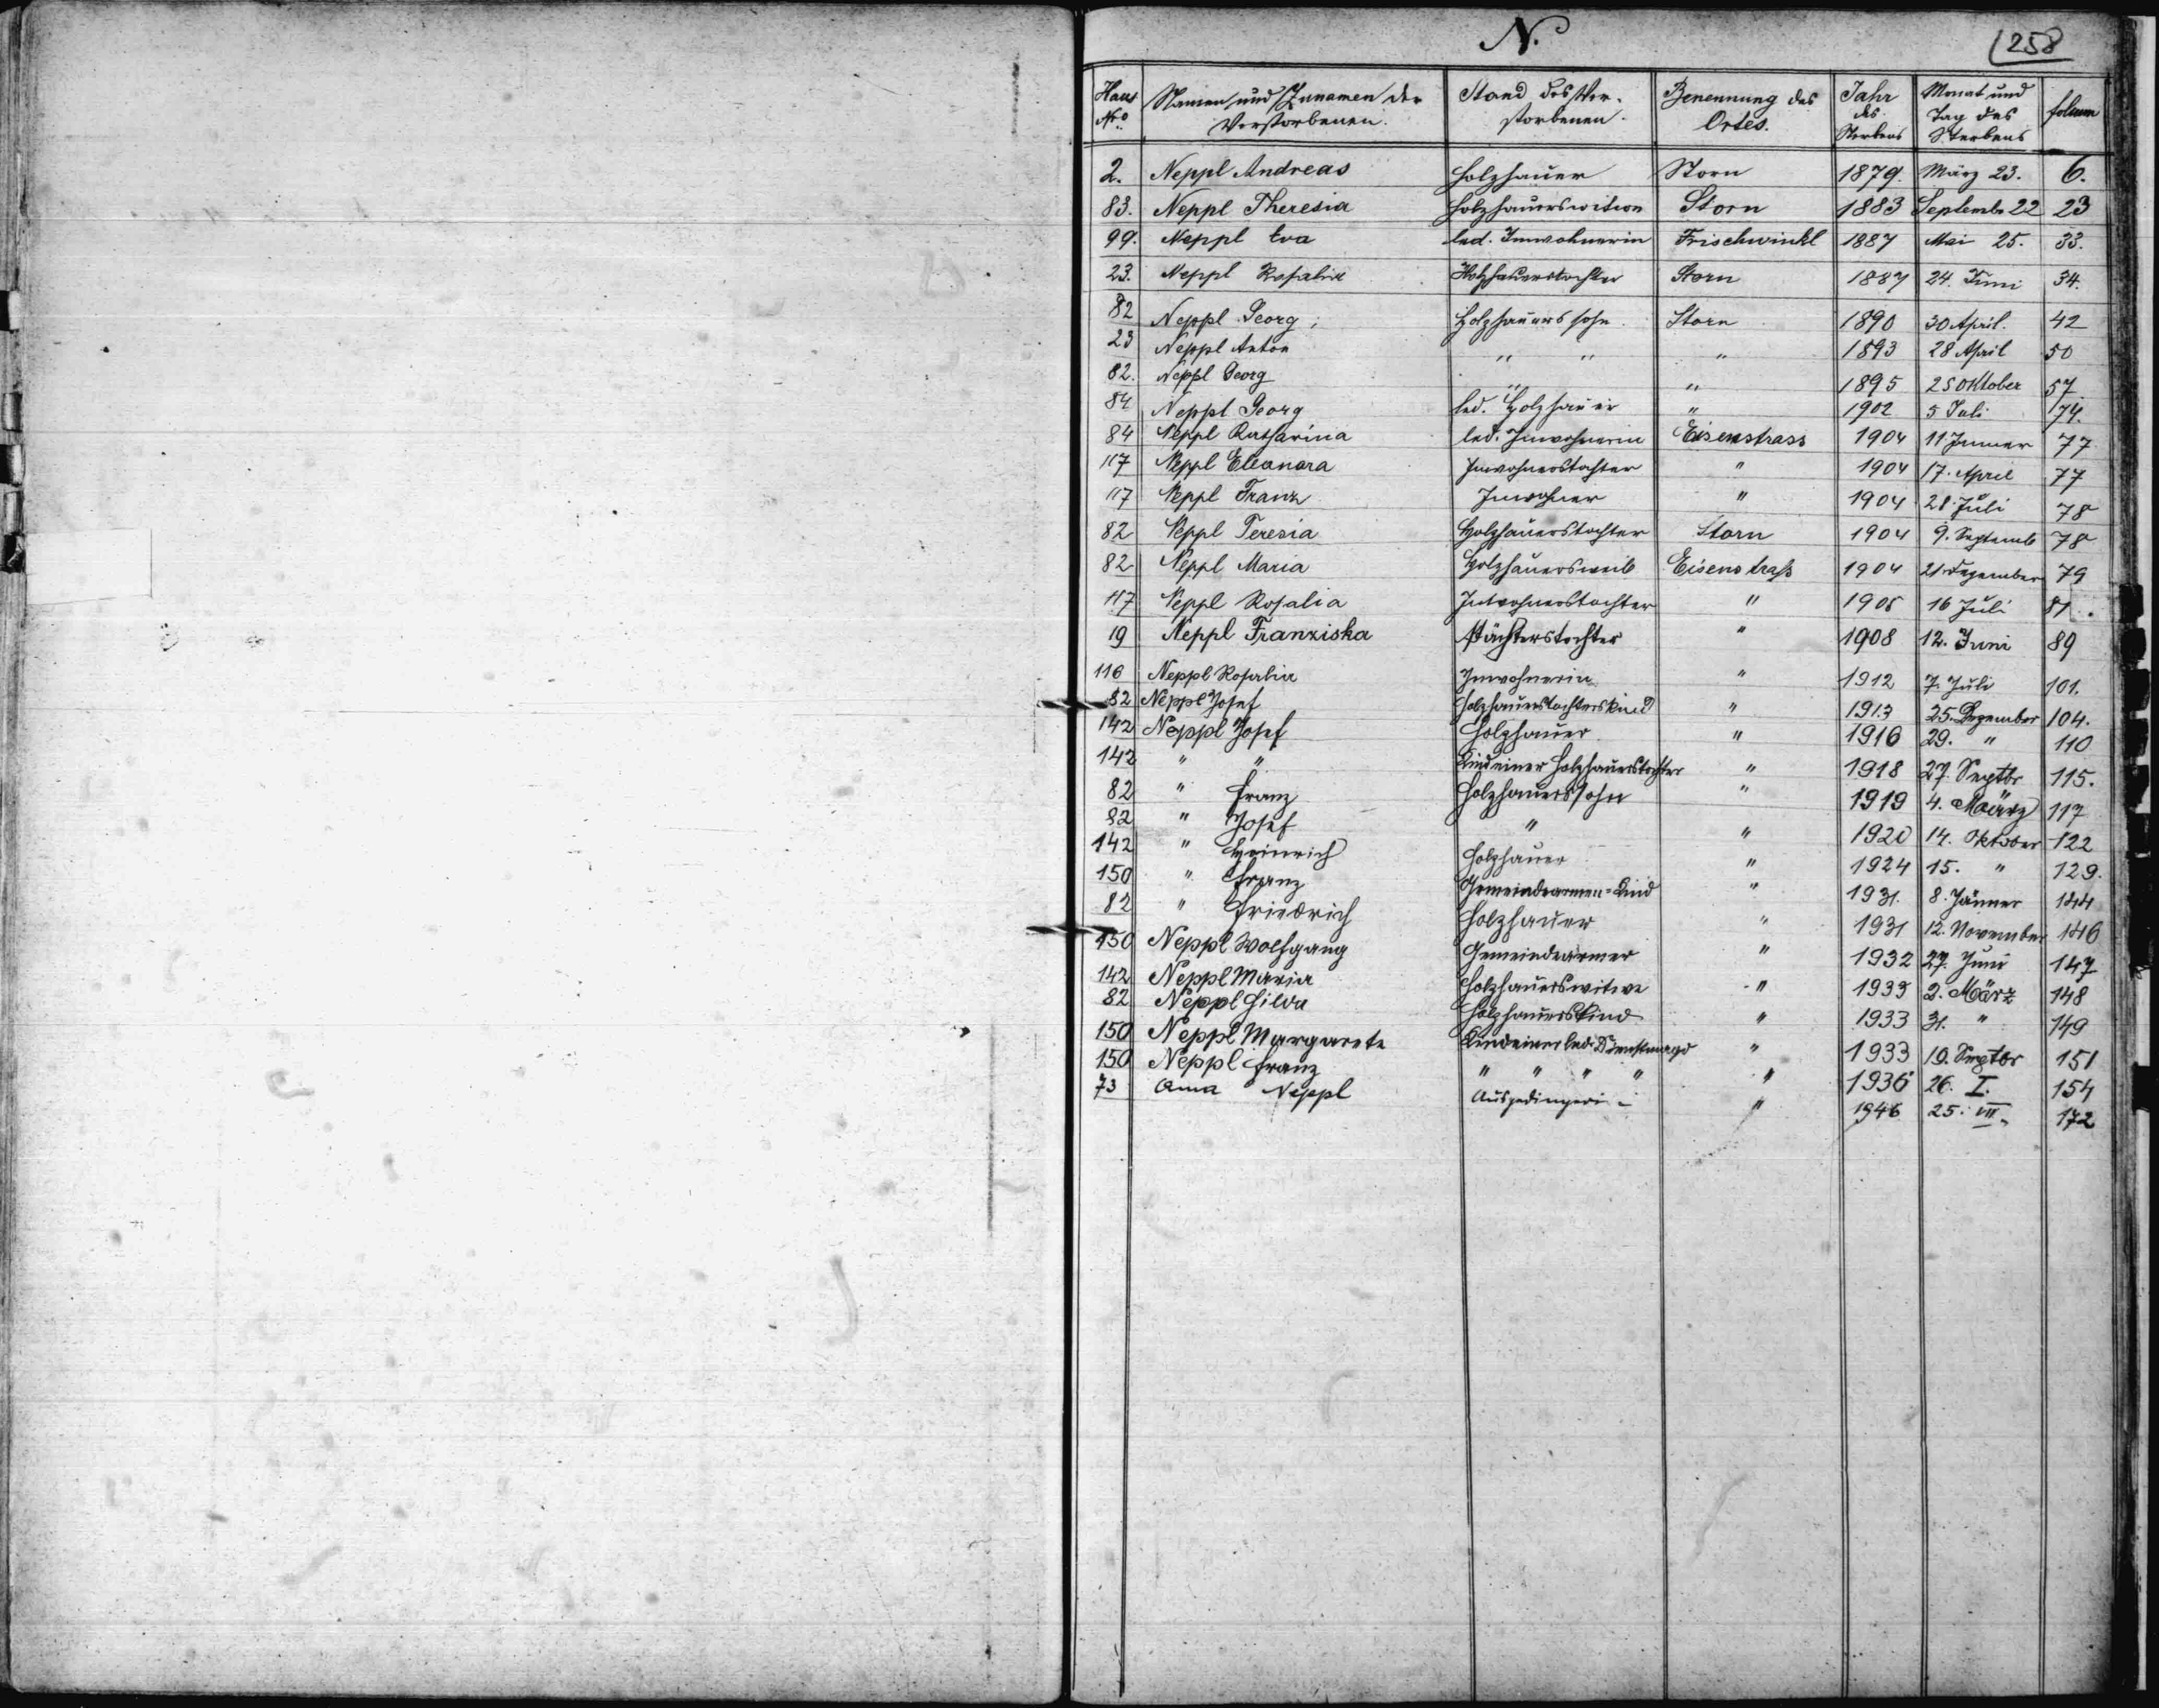 N.
258
Haus Nro Namen und Zunamen der Verstorbenen. Stand des Verstorbenen. Benennung des Ortes. Jahr des Sterbens Monat und Tag des Sterbens folium
2. Neppl Andreas Holzhauer Storn 1879. März 23. 6.
83. Neppl Theresia Holzhauerswitwe Storn 1883 Septembr 22 23
99. Neppl Eva led. Inwohnerin Frischwinkl 1887 Mai 25. 33.
23. Neppl Rosalia Holzhauerstochter Storn 1887 24. Juni 34.
82 Neppl Georg; Holzhauerssohn. Storn 1890 30 April. 42
23 Neppl Anton " " " 1893 28 April 50
82. Neppl Georg " " 1895 25 Oktober 57
84 Neppl Georg led. Holzhauer " 1902 5 Juli 74.
84 Neppl Katharina led. Inwohnerin Eisenstrass 1904 11 Jänner 77
117 Neppl Eleonara Inwohnerstochter " 1904 17. April 77
117 Neppl Franz Inwohner " 1904 28. Juli 78
82 Neppl Teresia Holzhauerstochter Storn 1904 9. Septemb 78
82 Neppl Maria Holzhauersweib Eisenstraß 1904 21 Dezember 79
117 Neppl Rosalia Inwohnerstochter " 1905 16 Juli 81.
19 Neppl Franziska Pächterstochter " 1908 12. Juni 89
116 Neppl Rosalia Inwohnerin " 1912 7. Juli 101.
82 Neppl Josef Holzhauerstochterskind " 1913 25. Dezember 104.
142 Neppl Josef Holzhauer " 1916 29. " 110
142 " " Kind einer Holzhauerstochter " 1918 27. Septbr 115.
82 " Franz Holzhauerssohn " 1919 4. März 117
82 " Josef " " 1920 14. Oktober 122
142 " Heinrich Holzhauer " 1924 15. " 129.
150 " Franz Gemeindearmen=Kind " 1931. 8. Jänner 144
82 " Friedrich Holzhauer " 1931 12. November 146
150 Neppl Wolfgang Gemeindearmer " 1932 27. Juni 147
142 Neppl Maria Holzhauerswitwe " 1933 2. März 148
82 Neppl Hilda Holzhauerskind " 1933 31. " 149
150 Neppl Margarete Kind einer led. Dienstmagd " 1933 19. Septbr 151
150 Neppl Franz " " " " " 1936 26. I. 154
73 Anna Neppl Ausgedingerin " 1946 25. VII. 172